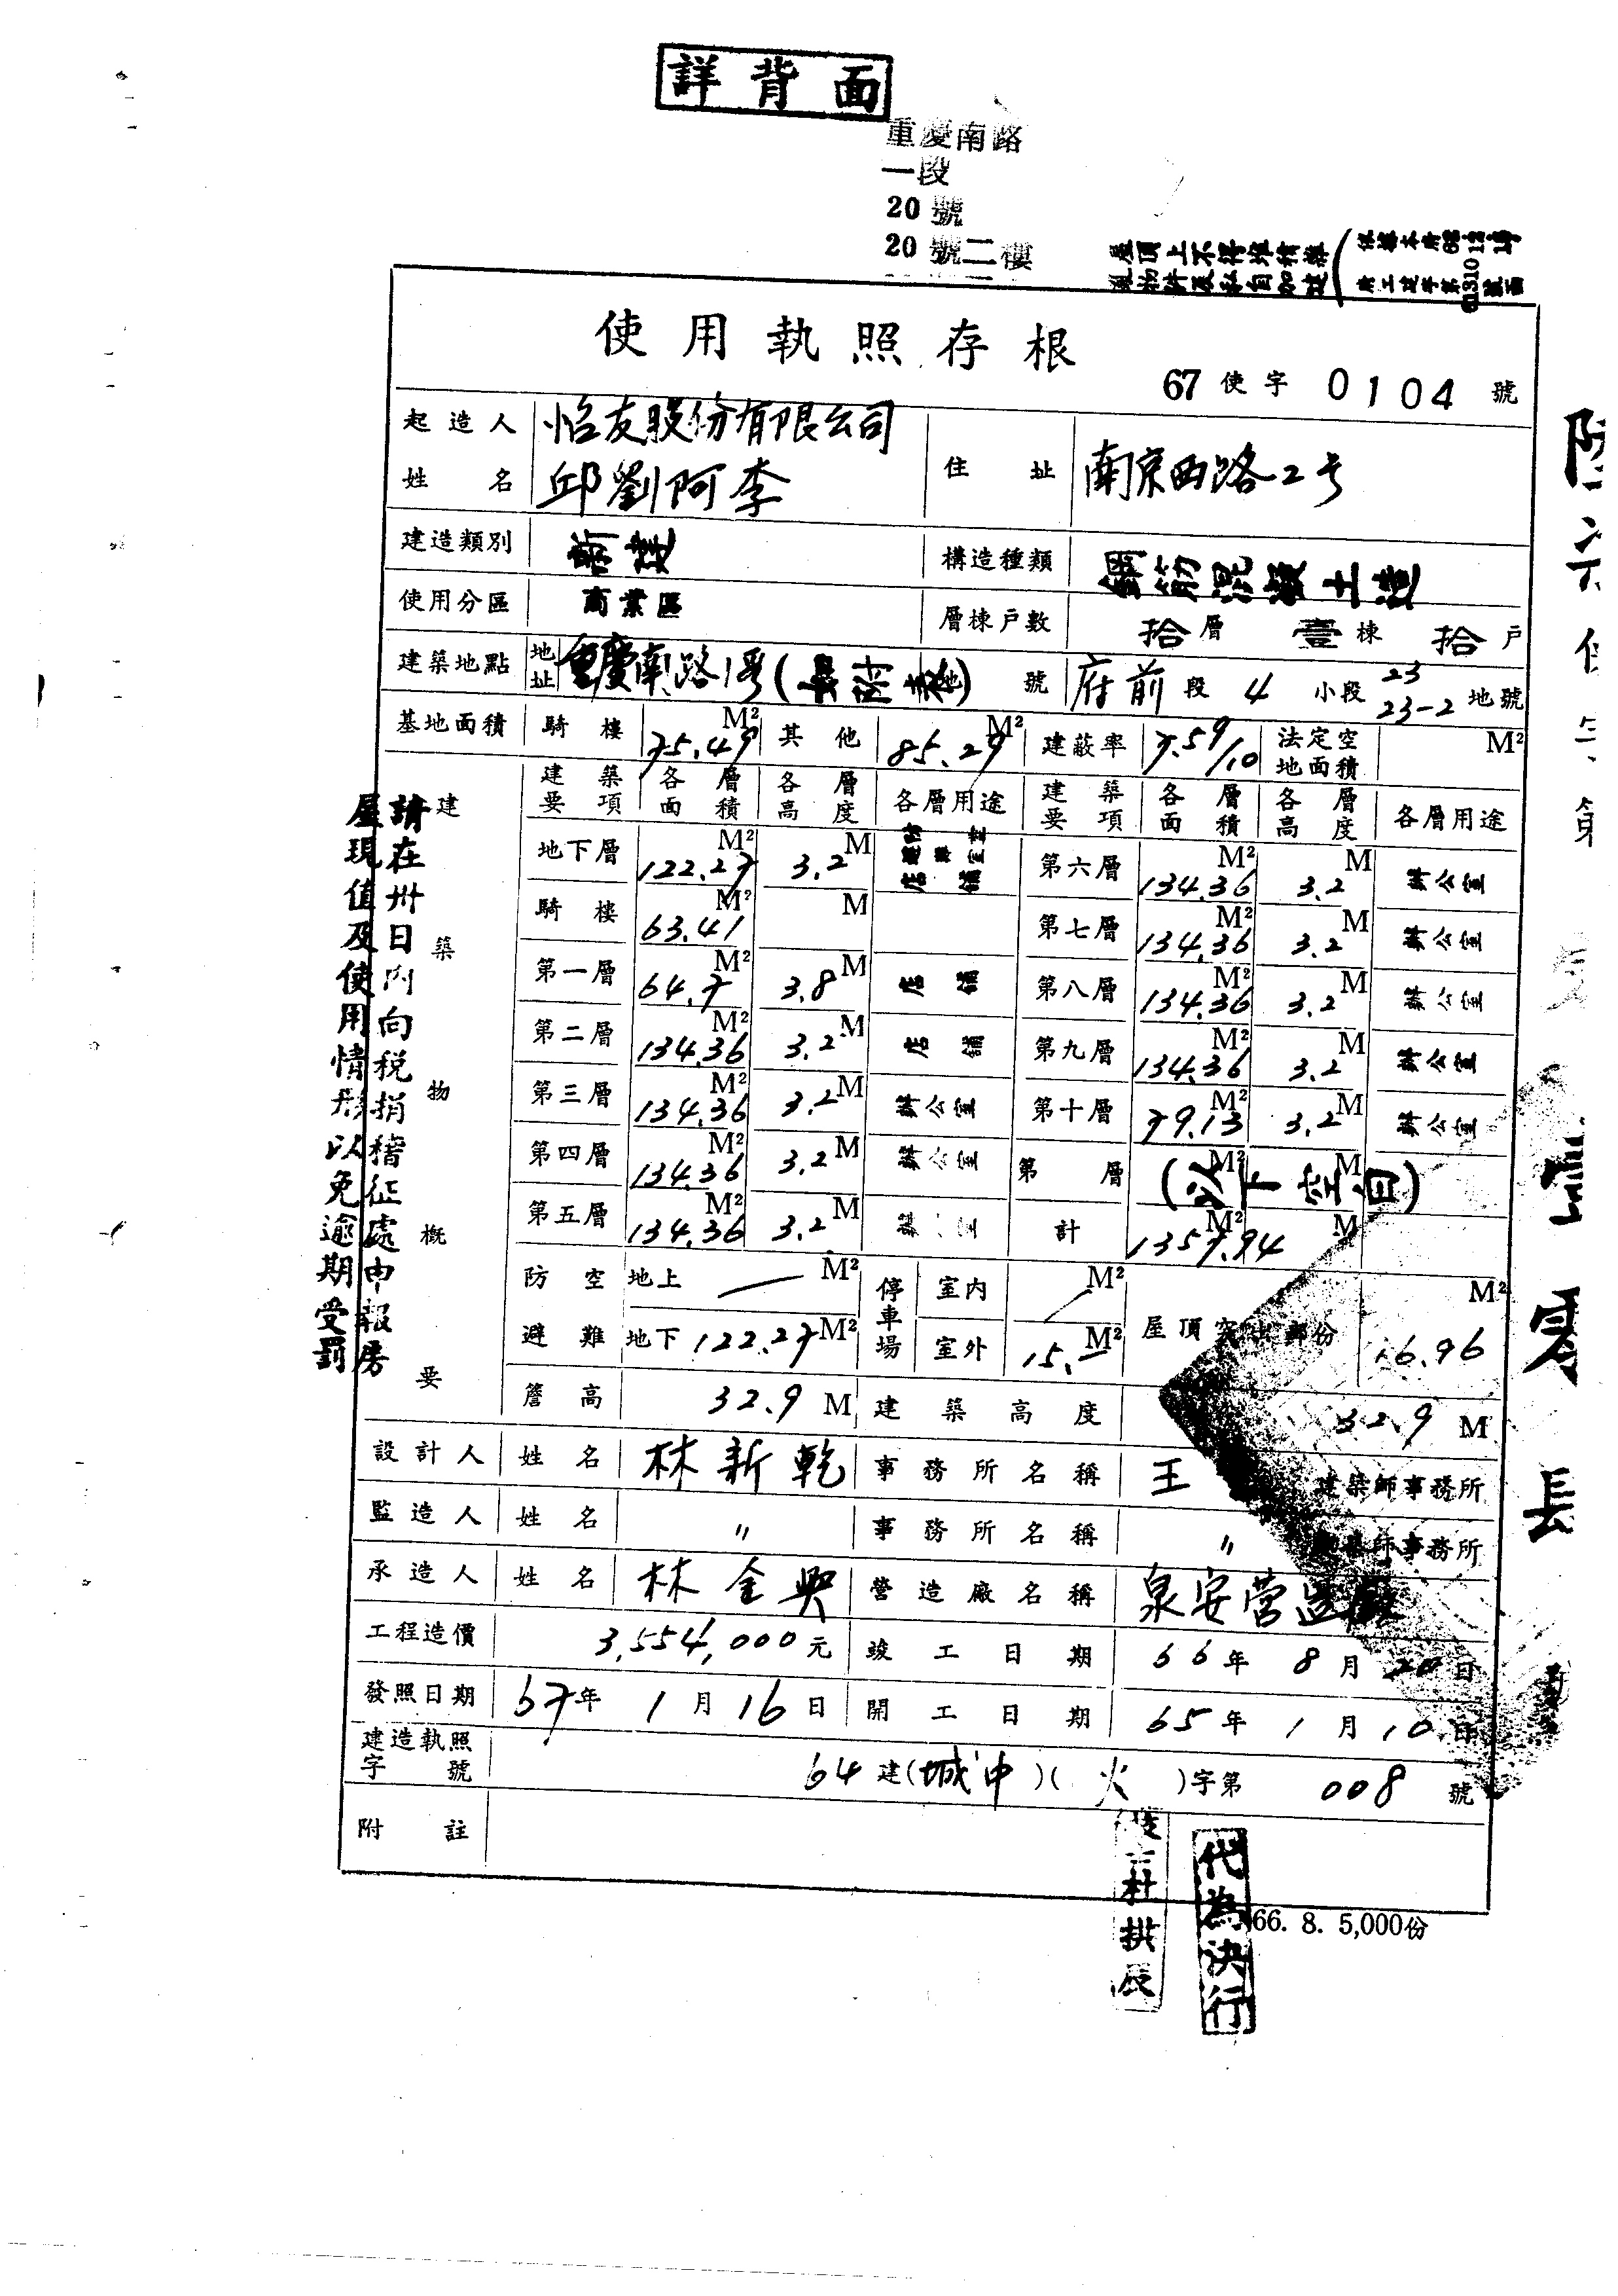 詳背面
重慶南路
一段
20號
20號二樓
屋頂上不得堆積雜
使用執照存根
67使字0104號
起造人姓名 怡友股份有限公司 邱劉阿李
住址 南京西路2号
建造類別 新建
構造種類 鋼筋混凝土造
使用分區 商業區
層棟戶數 拾層 壹棟 拾戶
建築地點 地址 重慶南路1段 號 府前段 4小段 23 23-2地號
基地面積 騎樓 75.49 M² 其他 85.29 M² 建蔽率 7.59/10 法定空地面積 M²
建築物概要
建築要項 各層面積 各層高度 各層用途 建築要項 各層面積 各層高度 各層用途
地下層 122.27 M² 3.2 M 店舖 第六層 134.36 M² 3.2 M 辦公室
騎樓 63.41 M² M 第七層 134.36 M² 3.2 M 辦公室
第一層 64.7 M² 3.8 M 店舖 第八層 134.36 M² 3.2 M 辦公室
第二層 134.36 M² 3.2 M 店舖 第九層 134.36 M² 3.2 M 辦公室
第三層 134.36 M² 3.2 M 辦公室 第十層 79.13 M² 3.2 M 辦公室
第四層 134.36 M² 3.2 M 辦公室 第 層 M² M (以下空白)
第五層 134.36 M² 3.2 M 計 1357.94 M² M
防空避難 地上 — M² 停車場 室內 M² 屋頂突出部份 M²
地下 122.27 M² 室外 15.— M² 6.96
簷高 32.9 M 建築高度 32.9 M
設計人 姓名 林新乾 事務所名稱 王 建築師事務所
監造人 姓名 〃 事務所名稱 〃 建築師事務所
承造人 姓名 林金興 營造廠名稱 泉安營造廠
工程造價 3,554,000元 竣工日期 66年8月20日
發照日期 67年1月16日 開工日期 65年1月10日
建造執照字號 64建(城中)(火)字第008號
附註
請在卅日內向稅捐稽征處申報房
屋現值及使用情形以免逾期受罰
杜拱辰
代為決行
66. 8. 5,000份